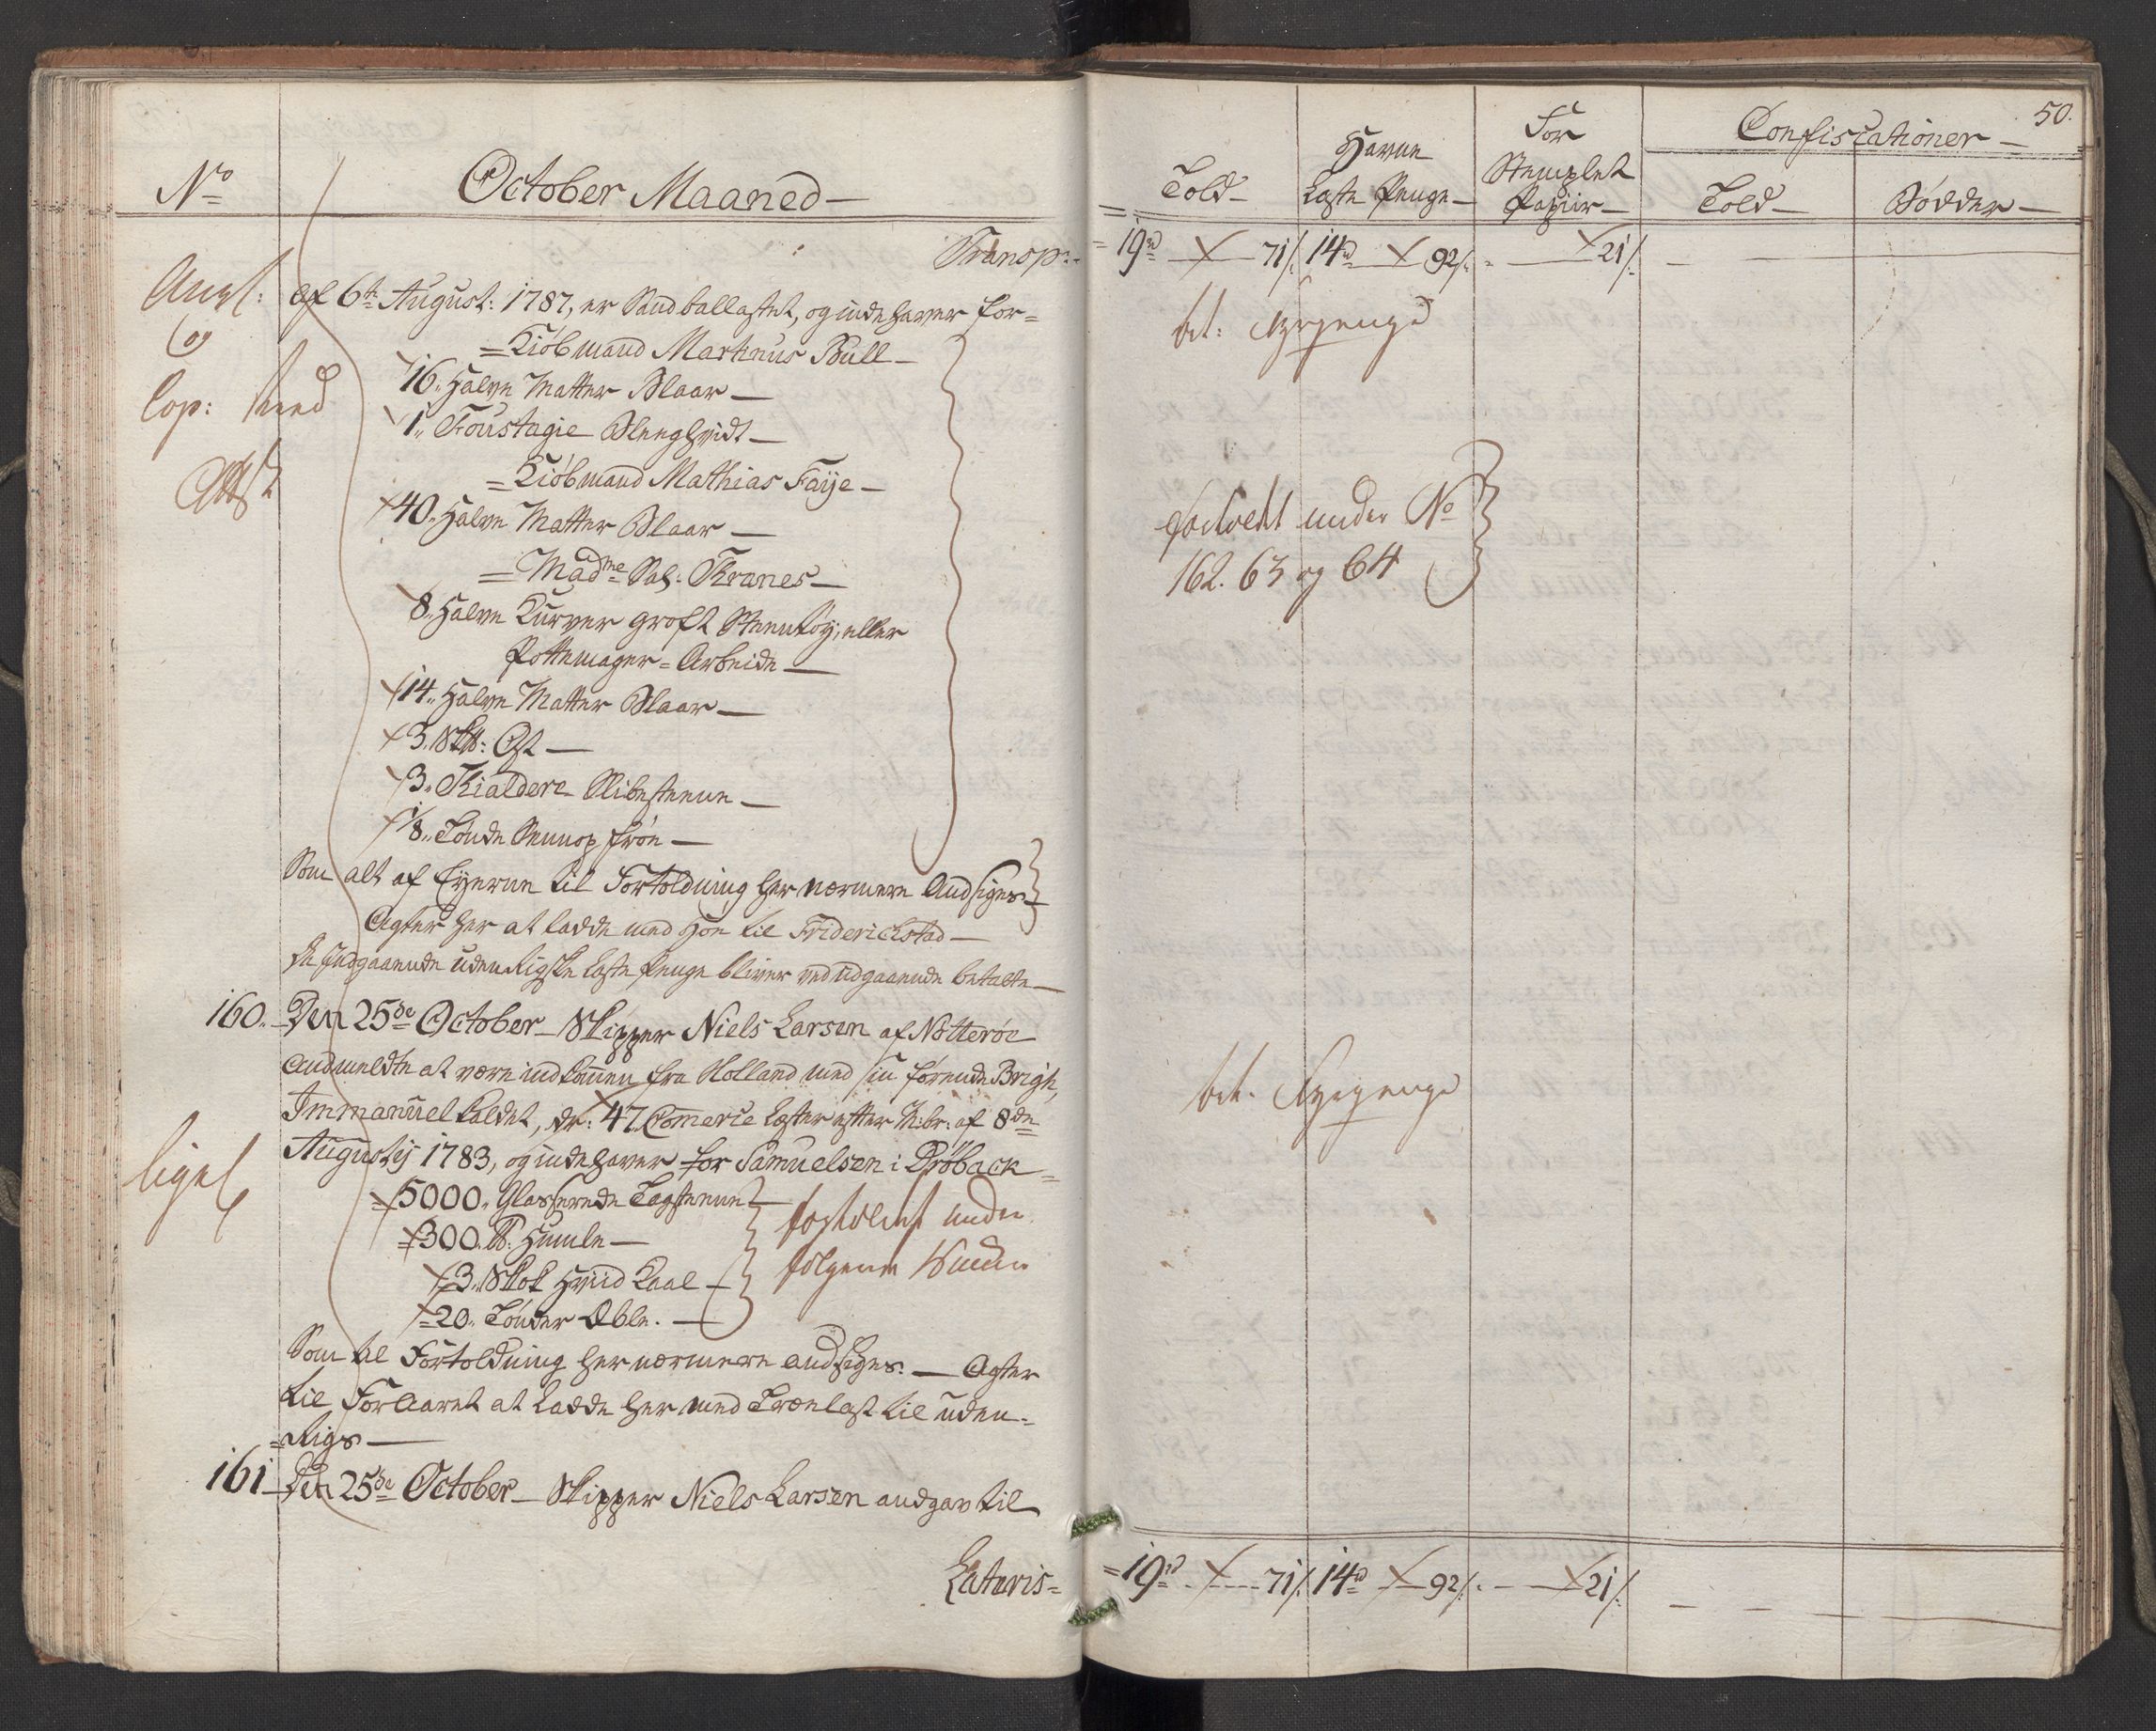 No
October Maaned
Transp:
Angl:
og
Cop: med
Attest
af 6te August: 1787, er Sandballastet, og indehaver for
Kiöbmand Martinus Bull
16. Halve Matter Blaar
1. Foustagie Bleeghvidt
Kiöbmand Mathias Faÿe
40. Halve Matter Blaar
Madme Sal. Kranes
8. Halve Kurver groft Steentöÿ, eller
Pottemager-Arbeide
14. Halve Matter Blaar
3. Sk℔: Ost
3. Kialdere Slibesteene
1/8. Tönde Sennopfröe
Som alt af Eÿerne til Fortoldning her nærmere Andsiges
Agter her at ladde med Höe til Friderichstad
De Indgaaende udenRigske Læste Penge bliver ved udgaaende betalte
160. Den 25de October Skipper Niels Larsen af Nötteröe
andmeldte at være indkommen fra Holland med sin förende Brigh,
Immanuel kaldet, dr: 47. Comerce Læster efter M:br: af 8de
Augustij 1783, og indehaver for Samuelsen i Dröback
ligel
5000. Glasserede Tagsteene
300. ℔. Humle
3. Skok Hviid Kaal
20. Tönder Æble.
fortoldet under
fölgende No
Som til Fortoldning her nærmere andsiges. Agter
til Foraaret at Ladde her med Trælast til uden
Rigs
161 Den 25de October Skipper Niels Larsen andgav til
Lateris
50.
Told
Havne
Læste Penge
For
Stemplet
Papiir
Confiscationer
Told
Bödder
19rd 71/. 14rd 92/. 21/.
bet: Fyrpenge
fortoldt under No
162. 63 og 64
bet. Fyrpenge
19rd 71/. 14rd 92/. 21/.